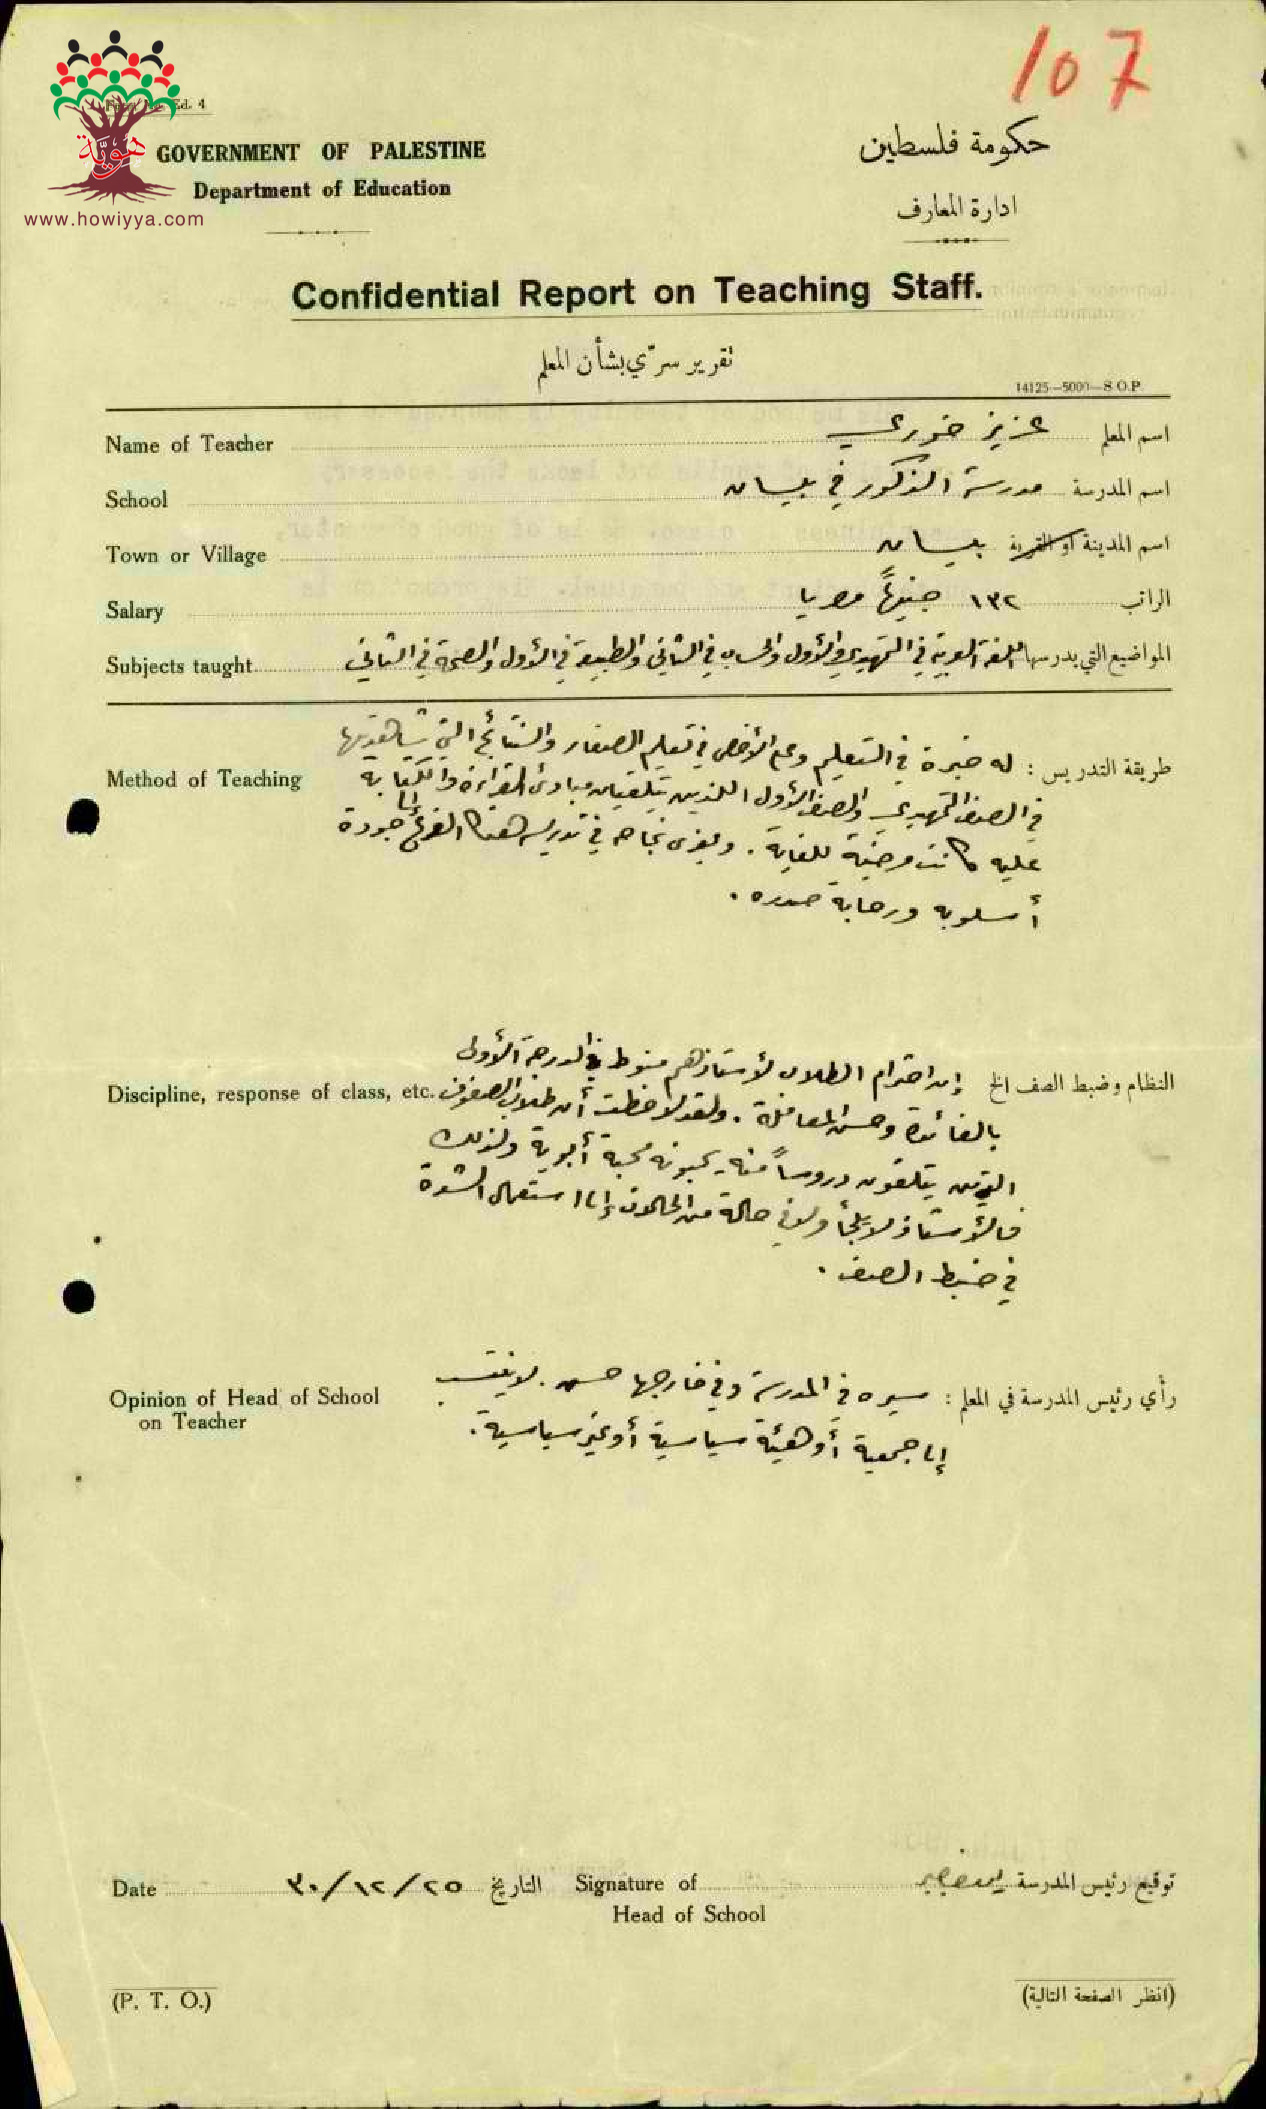 107
Form No. Ed. 4
هويّة
www.howiyya.com
GOVERNMENT OF PALESTINE
Department of Education
حكومة فلسطين
ادارة المعارف
Confidential Report on Teaching Staff.
تقرير سرّي بشأن المعلم
14125—5000—S.O.P.
Name of Teacher عزيز خوري اسم المعلم
School مدرسة الذكور في بيسان اسم المدرسة
Town or Village بيسان اسم المدينة او القرية
Salary ١٣٢ جنيهاً مصريا الراتب
Subjects taught اللغة العربية في التمهيدي والأول والحساب في الثاني والطبيعة في الأول والصحة في الثاني المواضيع التي يدرسها
Method of Teaching
طريقة التدريس : له خبرة في التعليم وعلى الأخص في تعليم الصغار والنتائج التي شاهدتها
في الصف التمهيدي والصف الأول اللذين يتلقيان مبادئ القراءة والكتابة
عليه كانت مرضية للغاية . ويعزى نجاحه في تدريس هذا الفرع إلى جودة
أسلوبه ورحابة صدره .
Discipline, response of class, etc.
النظام وضبط الصف الخ إن احترام الطلاب لأستاذهم منوط في الدرجة الأولى
بالفائدة وحسن المعاملة . ولقد لاحظت أن طلاب الصفوف
الذين يتلقون دروساً منه يحبونه محبة أبوية ولذلك
فالأستاذ لا يلجأ ولو في حالة من الحالات إلى استعمال الشدة
في ضبط الصف .
Opinion of Head of School
on Teacher
رأي رئيس المدرسة في المعلم : سيره في المدرسة وفي خارجها حسن . لا ينتسب
إلى جمعية أو هيئة سياسية أو غير سياسية .
Date ٣٠/١٢/٢٥ التاريخ Signature of توقيع رئيس المدرسة
Head of School
(P. T. O.)
(انظر الصفحة التالية)